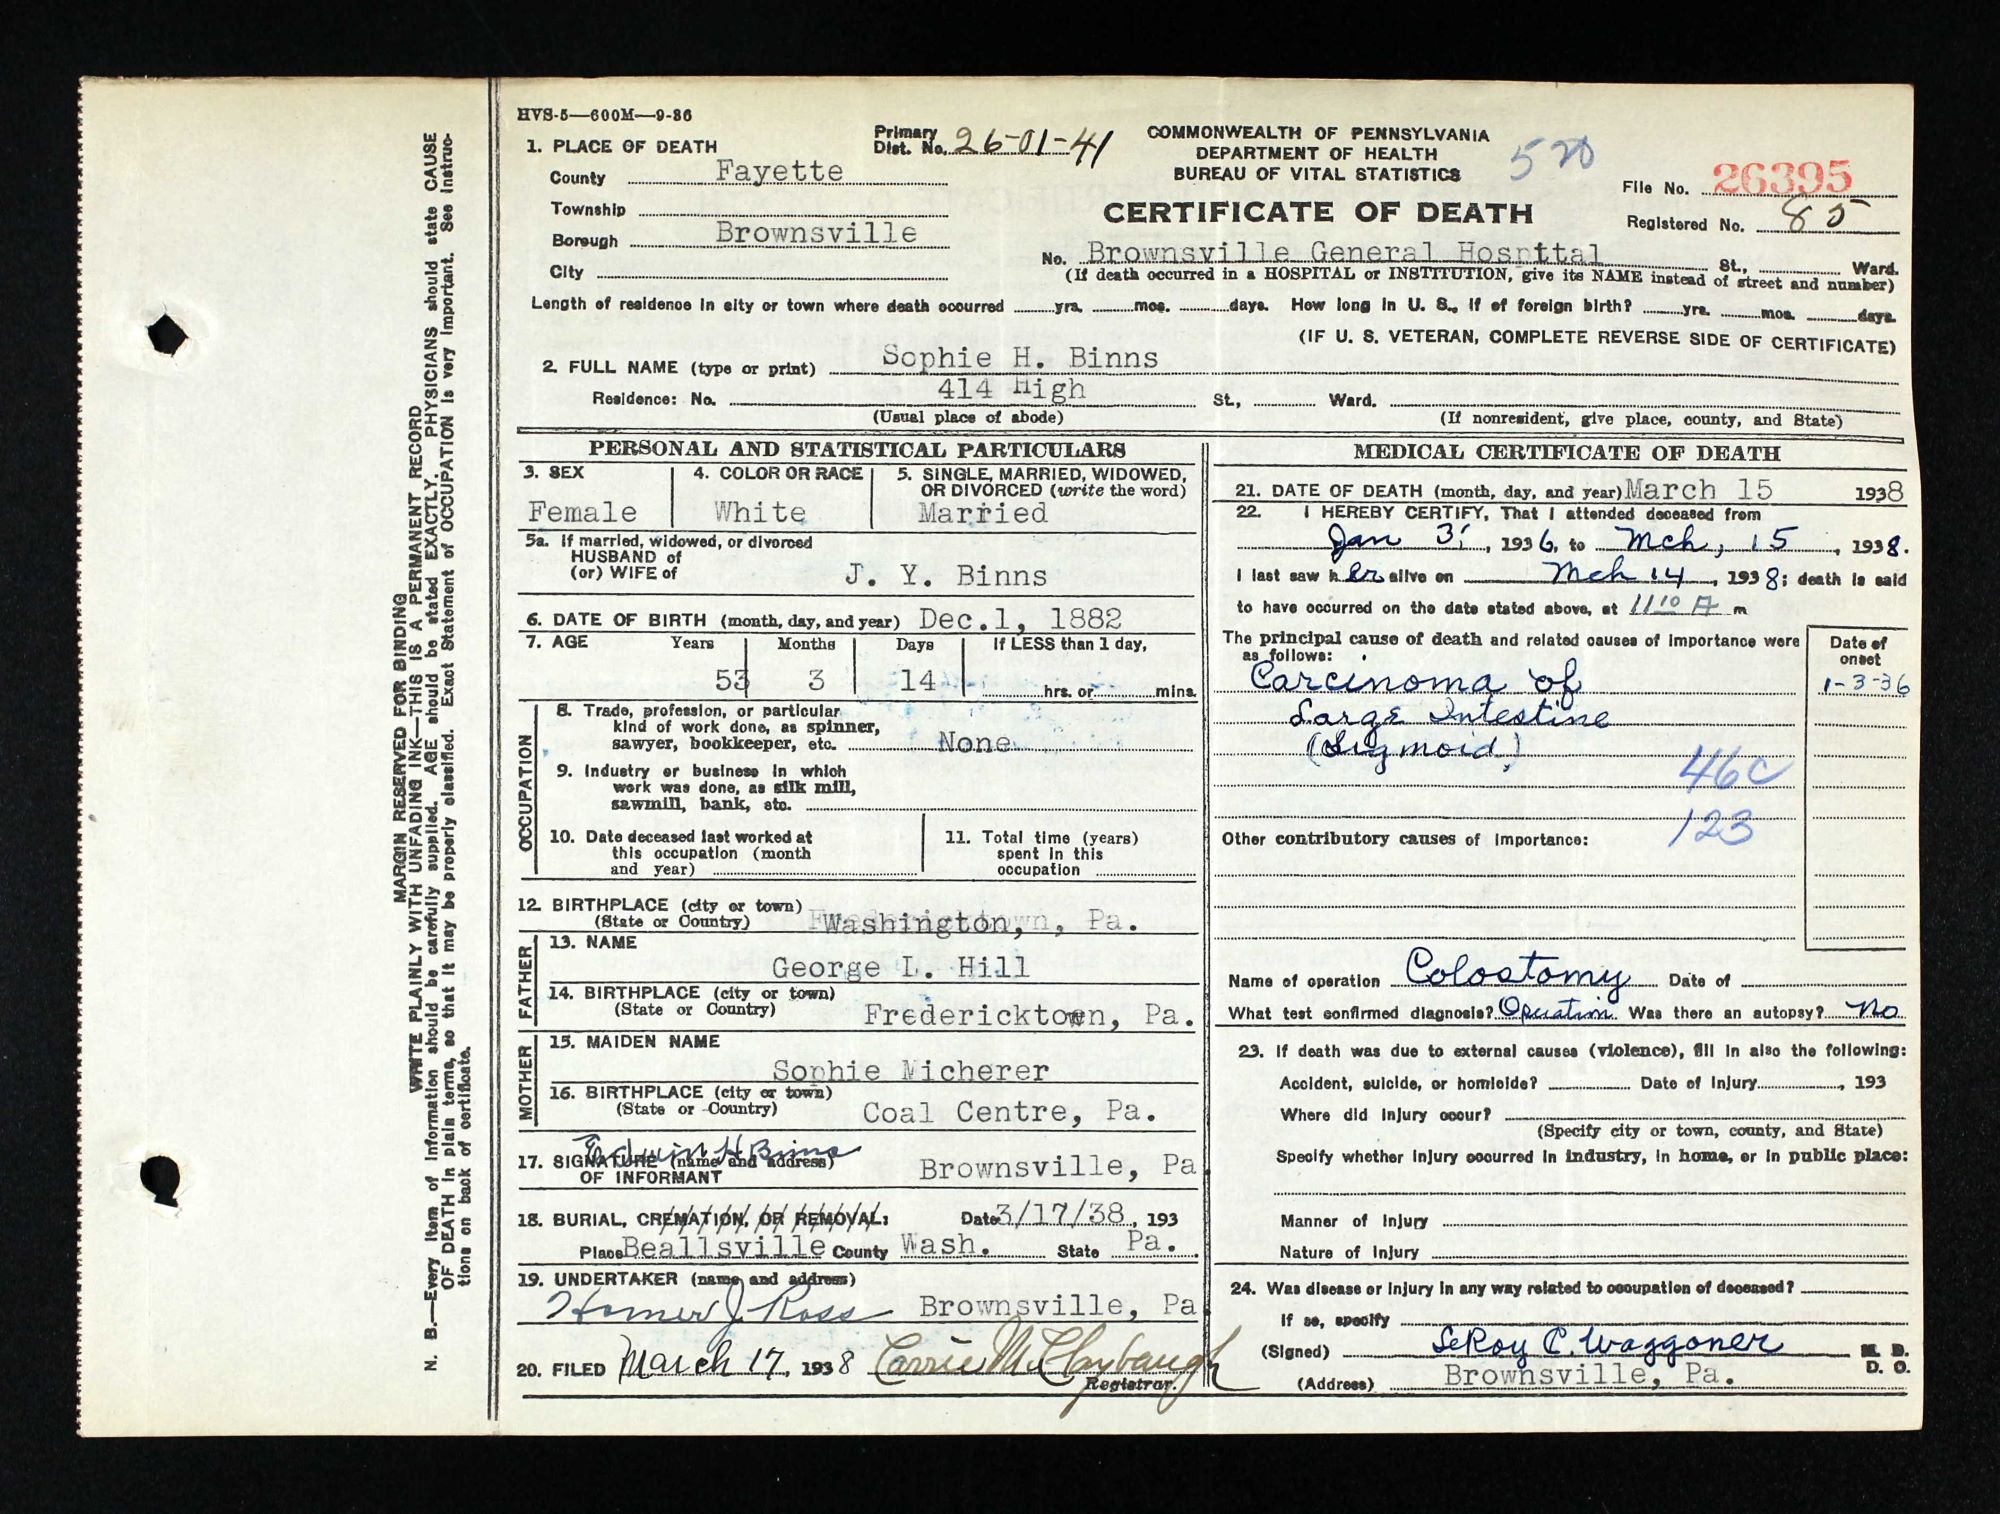 HVS-5—600M—9-36
1. PLACE OF DEATH
County Fayette
Township
Borough Brownsville
City
Primary Dist. No. 26-01-41
COMMONWEALTH OF PENNSYLVANIA
DEPARTMENT OF HEALTH
BUREAU OF VITAL STATISTICS
CERTIFICATE OF DEATH
File No. 26395
Registered No. 85
No. Brownsville General Hospital St., Ward.
(If death occurred in a HOSPITAL or INSTITUTION, give its NAME instead of street and number)
Length of residence in city or town where death occurred yrs. mos. days. How long in U. S., if of foreign birth? yrs. mos. days.
(IF U. S. VETERAN, COMPLETE REVERSE SIDE OF CERTIFICATE)
2. FULL NAME (type or print) Sophie H. Binns
Residence: No. 414 High St., Ward.
(Usual place of abode) (If nonresident, give place, county, and State)
PERSONAL AND STATISTICAL PARTICULARS
3. SEX
Female
4. COLOR OR RACE
White
5. SINGLE, MARRIED, WIDOWED,
OR DIVORCED (write the word)
Married
5a. If married, widowed, or divorced
HUSBAND of
(or) WIFE of J. Y. Binns
6. DATE OF BIRTH (month, day, and year) Dec.1, 1882
7. AGE Years Months Days If LESS than 1 day,
53 3 14 hrs. or mins.
OCCUPATION
8. Trade, profession, or particular
kind of work done, as spinner,
sawyer, bookkeeper, etc. None
9. Industry or business in which
work was done, as silk mill,
sawmill, bank, etc.
10. Date deceased last worked at
this occupation (month
and year)
11. Total time (years)
spent in this
occupation
12. BIRTHPLACE (city or town)
(State or Country) Washington, Pa.
FATHER
13. NAME
George L. Hill
14. BIRTHPLACE (city or town)
(State or Country) Fredericktown, Pa.
MOTHER
15. MAIDEN NAME
Sophie Micherer
16. BIRTHPLACE (city or town)
(State or Country) Coal Centre, Pa.
Edwin H Binns
17. SIGNATURE (name and address) Brownsville, Pa
OF INFORMANT
18. BURIAL, CREMATION, OR REMOVAL: Date 3/17/38, 193
Place Beallsville County Wash. State Pa.
19. UNDERTAKER (name and address)
Homer J Ross Brownsville, Pa
20. FILED March 17, 1938 Carrie M. Claybaugh
Registrar.
MEDICAL CERTIFICATE OF DEATH
21. DATE OF DEATH (month, day, and year) March 15 1938
22. I HEREBY CERTIFY, That I attended deceased from
Jan 3, 1936, to Mch, 15, 1938.
I last saw her alive on Mch 14, 1938; death is said
to have occurred on the date stated above, at 11 10 A m
The principal cause of death and related causes of importance were
as follows:
Date of
onset
Carcinoma of 1-3-36
Large Intestine
(Sigmoid)
46c
123
Other contributory causes of importance:
Name of operation Colostomy Date of
What test confirmed diagnosis? Operation Was there an autopsy? No
23. If death was due to external causes (violence), fill in also the following:
Accident, suicide, or homicide? Date of injury, 193
Where did injury occur?
(Specify city or town, county, and State)
Specify whether injury occurred in industry, in home, or in public place:
Manner of injury
Nature of injury
24. Was disease or injury in any way related to occupation of deceased?
If so, specify
(Signed) LeRoy C. Waggoner M. D.
D. O.
(Address) Brownsville, Pa.
MARGIN RESERVED FOR BINDING
WRITE PLAINLY WITH UNFADING INK—THIS IS A PERMANENT RECORD
N. B.—Every item of information should be carefully supplied. AGE should be stated EXACTLY. PHYSICIANS should state CAUSE
OF DEATH in plain terms, so that it may be properly classified. Exact Statement of OCCUPATION is very important. See instruc-
tions on back of certificate.